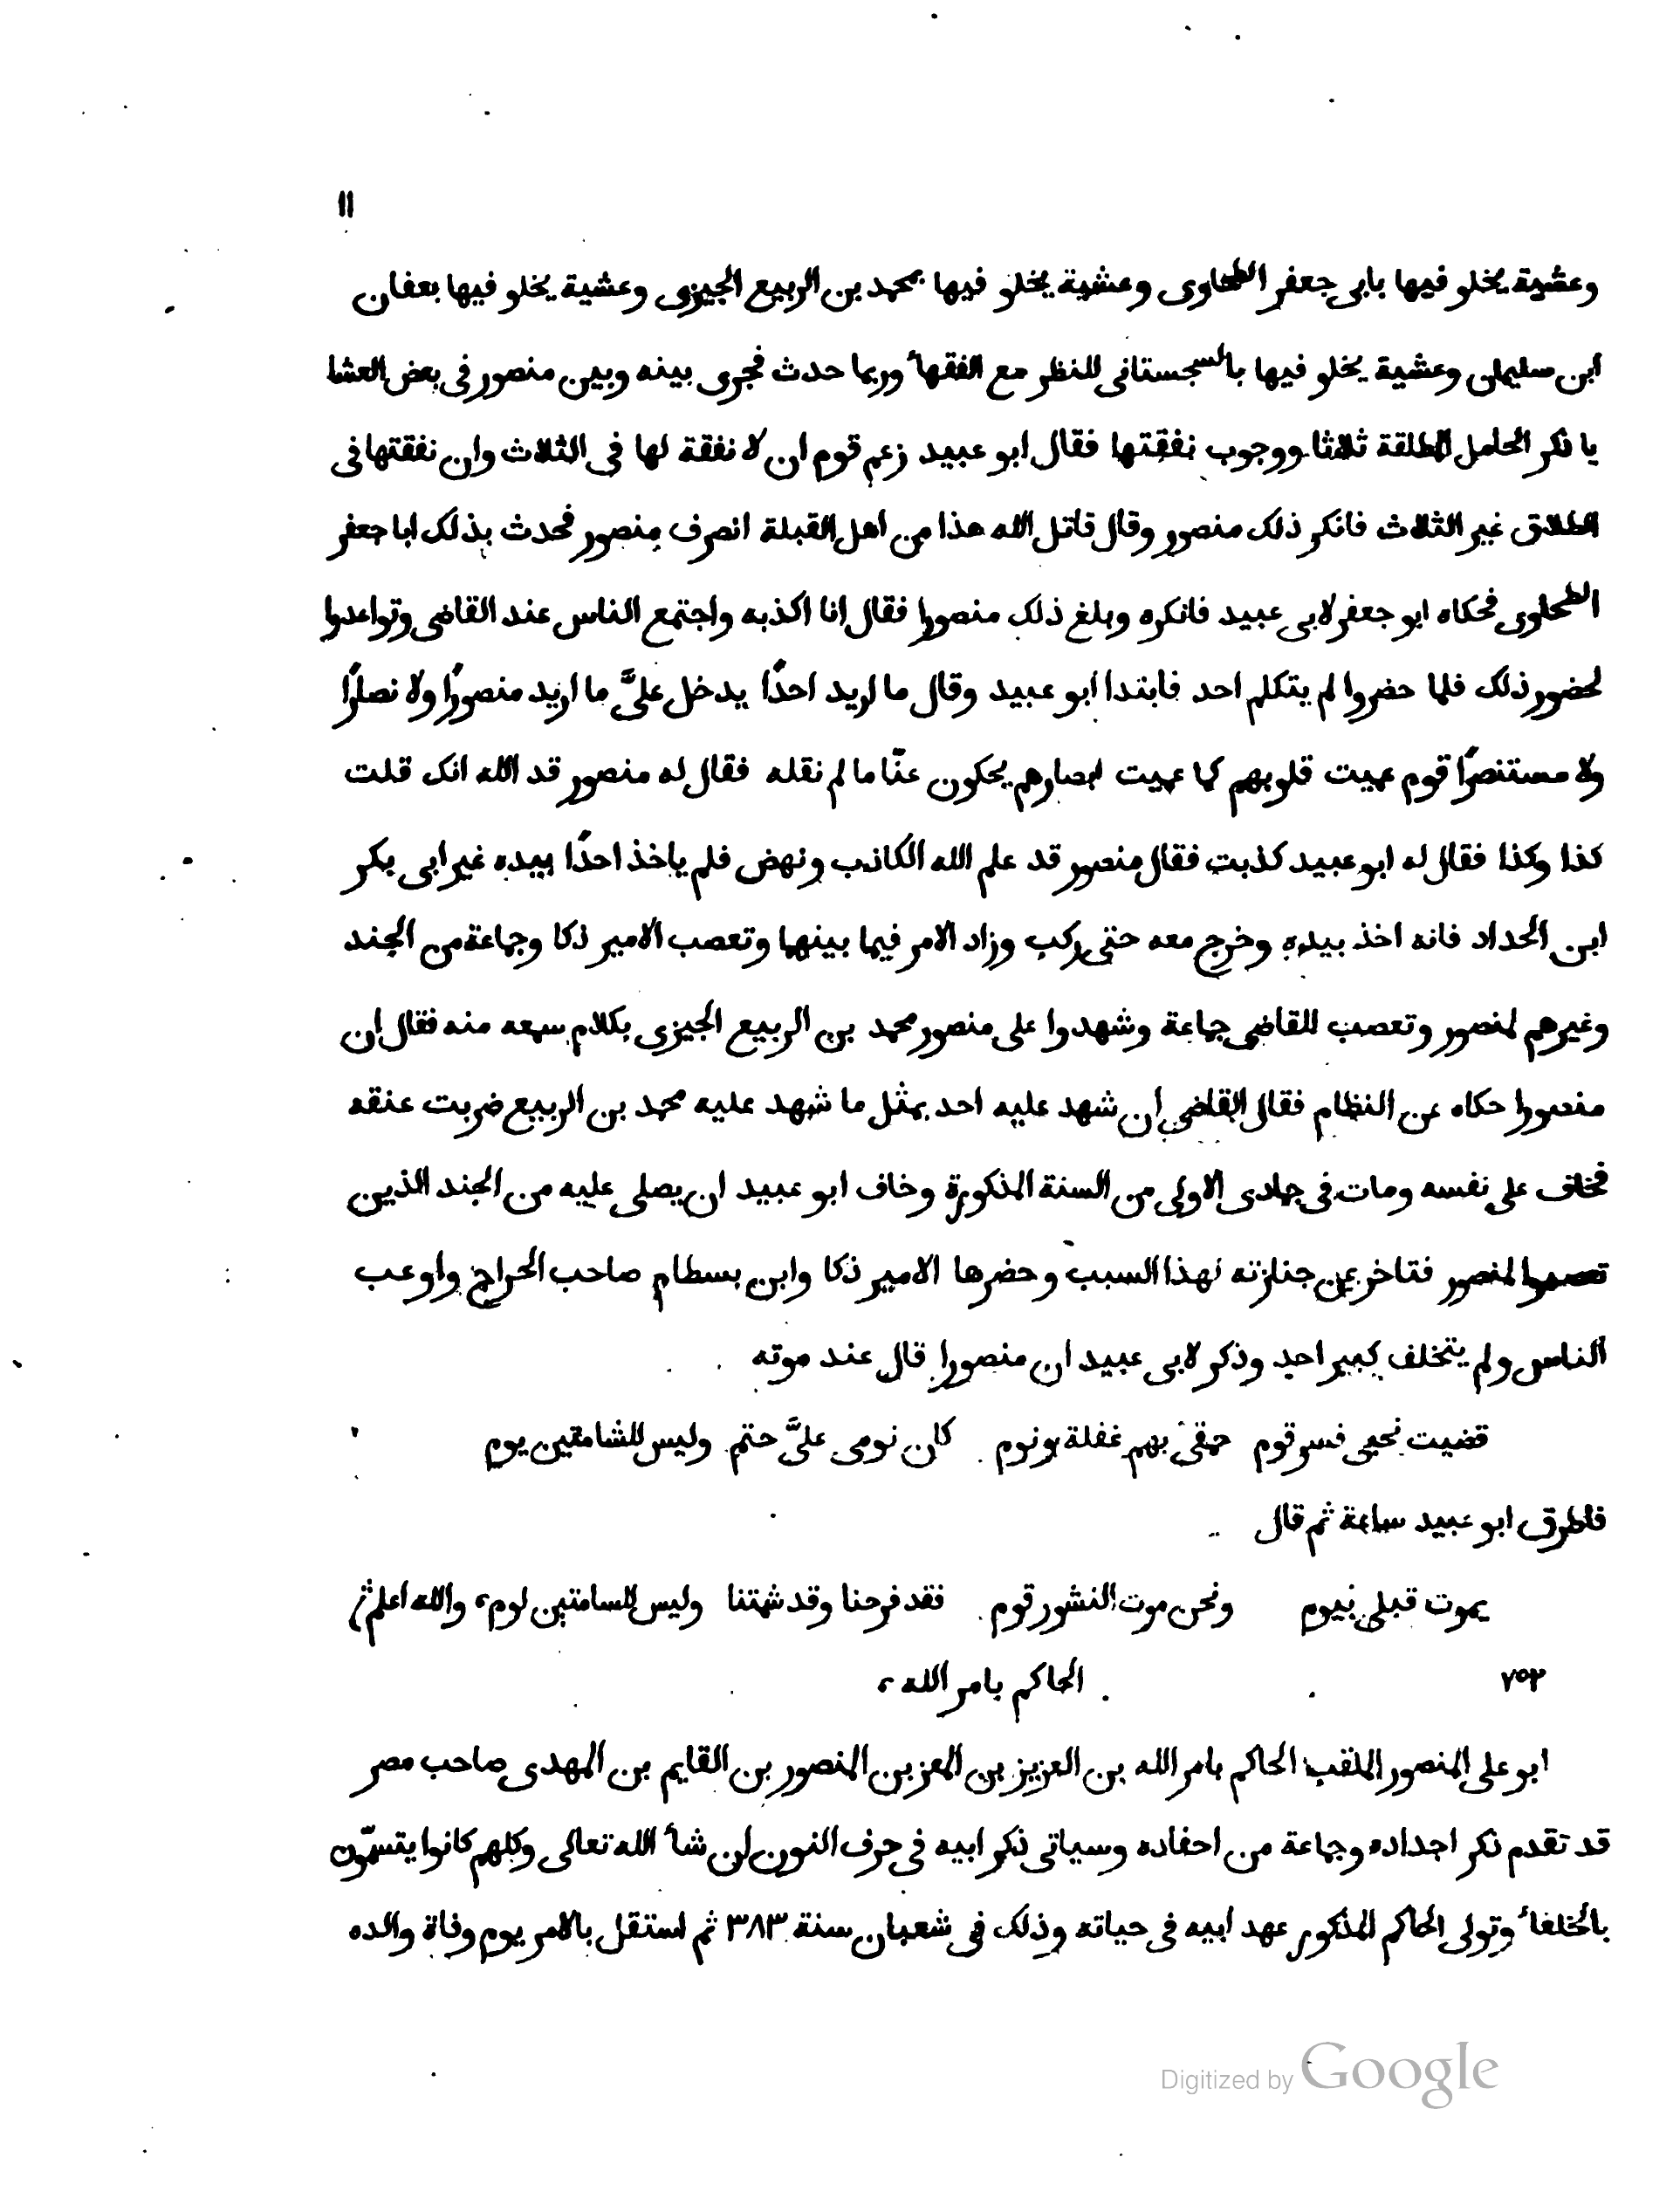 ١١
وعشية يخلو فيها بابى جعفر الطحاوى وعشية يخلو فيها بمحمد بن الربيع الجيزى وعشية يخلو فيها بعفان
ابن سليمان وعشية يخلو فيها بالسجستانى للنظر مع الفقهأ وربما حدث فجرى بينه وبين منصور فى بعض العشا
يا ذكر الحامل المطلقة ثلاثا ووجوب نفقتها فقال ابو عبيد زعم قوم ان لا نفقة لها فى الثلاث وان نفقتها فى
الطلاق غير الثلاث فانكر ذلك منصور وقال قاتل الله هذا من اهل القبلة انصرف منصور فحدث بذلك ابا جعفر
الطحاوى فحكاه ابو جعفر لابى عبيد فانكره وبلغ ذلك منصورا فقال انا اكذبه واجتمع الناس عند القاضى وتواعدوا
لحضور ذلك فلما حضروا لم يتكلم احد فابتدا ابو عبيد وقال ما اريد احدًا يدخل علىَّ ما اريد منصورًا ولا نصارًا
ولا مستنصرًا قوم عميت قلوبهم كما عميت ابصارهم يحكون عنّا ما لم نقله فقال له منصور قد الله انك قلت
كذا وكذا فقال له ابو عبيد كذبت فقال منصور قد علم الله الكاذب ونهض فلم ياخذ احدًا بيده غير ابى بكر
ابن الحداد فانه اخذ بيده وخرج معه حتى ركب وزاد الامر فيما بينهما وتعصب الامير ذكا وجماعة من الجند
وغيرهم لمنصور وتعصب للقاضى جماعة وشهدوا على منصور محمد بن الربيع الجيزى بكلام سمعه منه فقال ان
منصورا حكاه عن النظام فقال القاضى ان شهد عليه احد بمثل ما شهد عليه محمد بن الربيع ضربت عنقه
فخاف على نفسه ومات فى جمادى الاولى من السنة المذكورة وخاف ابو عبيد ان يصلى عليه من الجند الذين
تعصبوا لمنصور فتاخر عن جنازته لهذا السبب وحضرها الامير ذكا وابن بسطام صاحب الخراج واوعب
الناس ولم يتخلف كبير احد وذكر لابى عبيد ان منصورا قال عند موته
قضيت نحبى فسر قوم حمقى بهم غفلة ونوم كان نومى علىَّ حتم وليس للشامتين يوم
فاطرق ابو عبيد ساعة ثم قال
يموت قبلى بيوم ونحن موت النشور قوم فقد فرحنا وقد شمتنا وليس للسامتين لوم، والله اعلم
٧٥٢
الحاكم بامر الله،
ابو على المنصور الملقب الحاكم بامر الله بن العزيز بن المعز بن المنصور بن القايم بن المهدى صاحب مصر
قد تقدم ذكر اجداده وجماعة من احفاده وسياتى ذكر ابيه فى حرف النون ان شأ الله تعالى وكلهم كانوا يتسمّون
بالخلفأ وتولى الحاكم المذكور عهد ابيه فى حياته وذلك فى شعبان سنة ٣٨٣ ثم استقل بالامر يوم وفاة والده
Digitized by Google